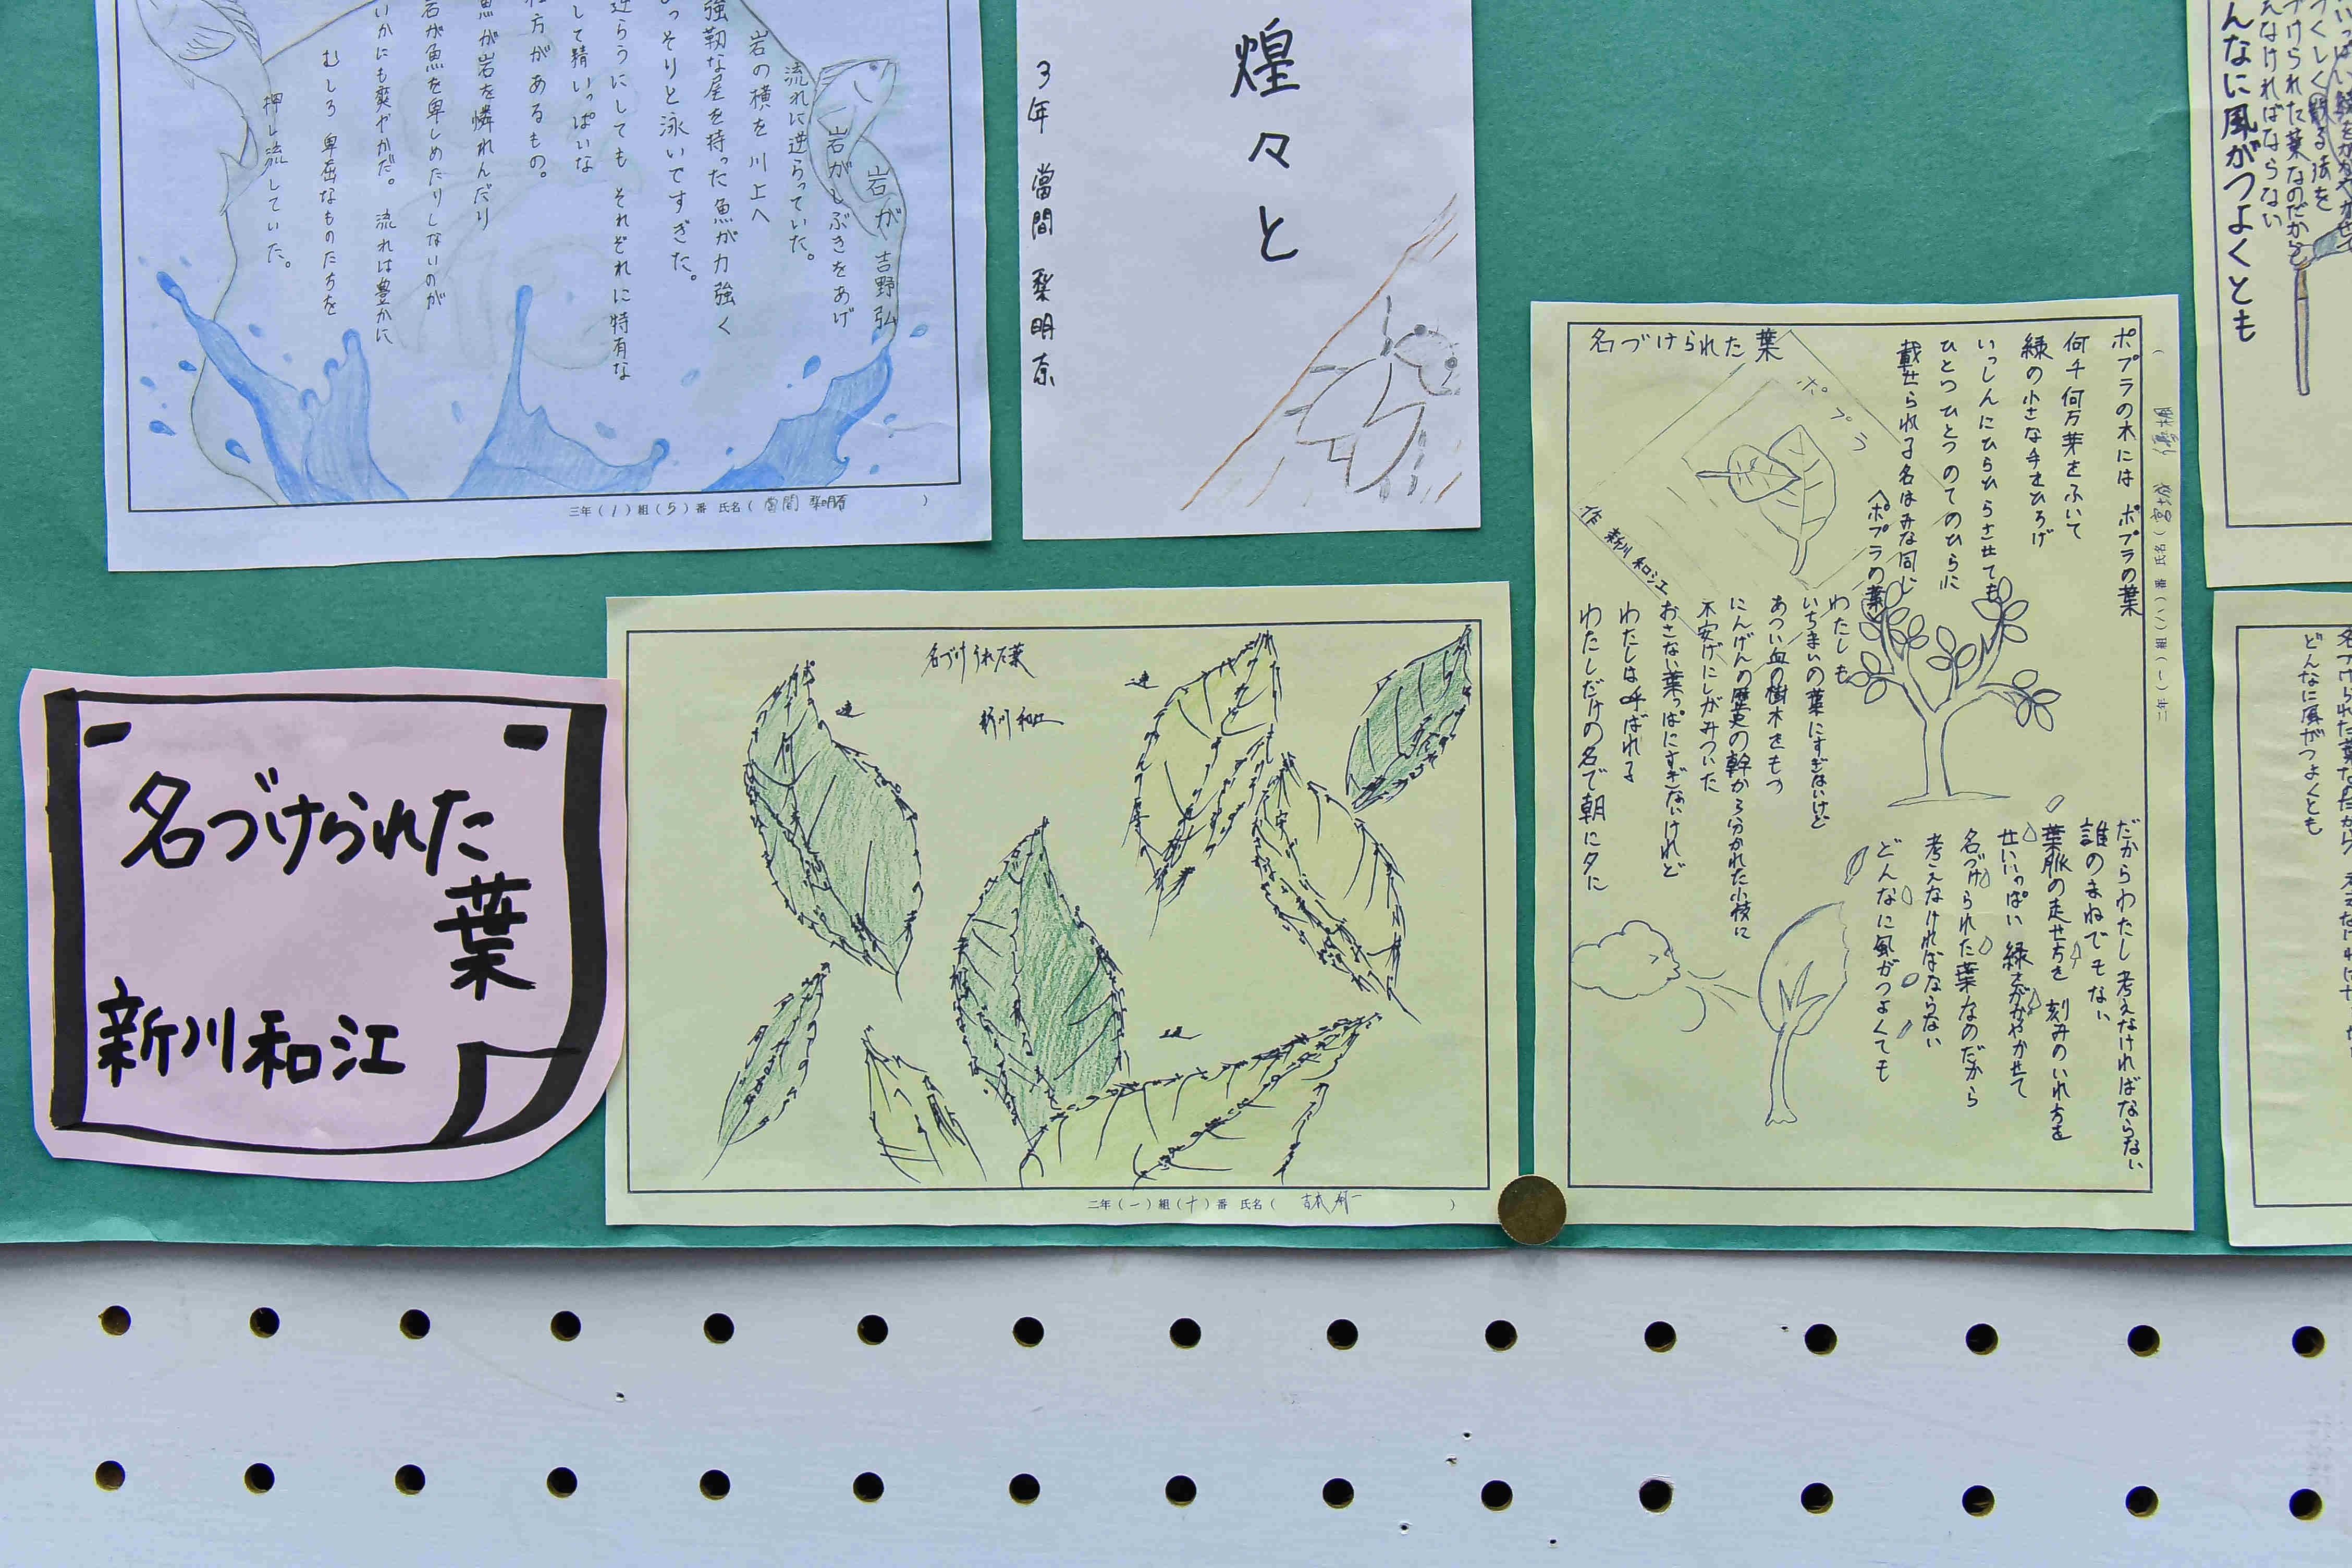 岩が 吉野弘
岩がしぶきをあげ
流れに逆らっていた。
岩の横を 川上へ
強靭な尾を持った魚が力強く
っそりと泳いですぎた。
逆らうにしても それぞれに特有な
して精いっぱいな
方があるもの。
魚が岩を憐れんだり
岩が魚を卑しめたりしないのが
いかにも爽やかだ。 流れは豊かに
むしろ 卑屈なものたちを
押し流していた。
三年(1)組(5)番 氏名(當間 梨明奈)
煌々と
3年 當間 梨明奈
んなに風がつよくとも
えなければならない
づけられた葉なのだから
つくしく散る法を
名づけられた葉
新川和江
名づけられた葉
新川和江
二年(一)組(十)番 氏名( )
名づけられた葉
ポプラ
作 新川和江
ポプラの木には ポプラの葉
何千何万芽をふいて
緑の小さな手をひろげ
いっしんにひらひらさせても
ひとつひとつのてのひらに
載せられる名はみな同じ
〈ポプラの葉〉
わたしも
いちまいの葉にすぎないけど
あつい血の樹木をもつ
にんげんの歴史の幹から分かれた小枝に
不安げにしがみついた
おさない葉っぱにすぎないけれど
わたしは呼ばれる
わたしだけの名で朝に夕に
だからわたし考えなければならない
誰のまねでもない
葉脈の走せ方を 刻みのいれ方を
せいいっぱい緑をかがやかせて
名づけられた葉なのだから
考えなければならない
どんなに風がつよくても
二年(一)組(八)番 氏名(宮城 優楓)
名づけられた葉なのだから 考えなければ
どんなに風がつよくとも